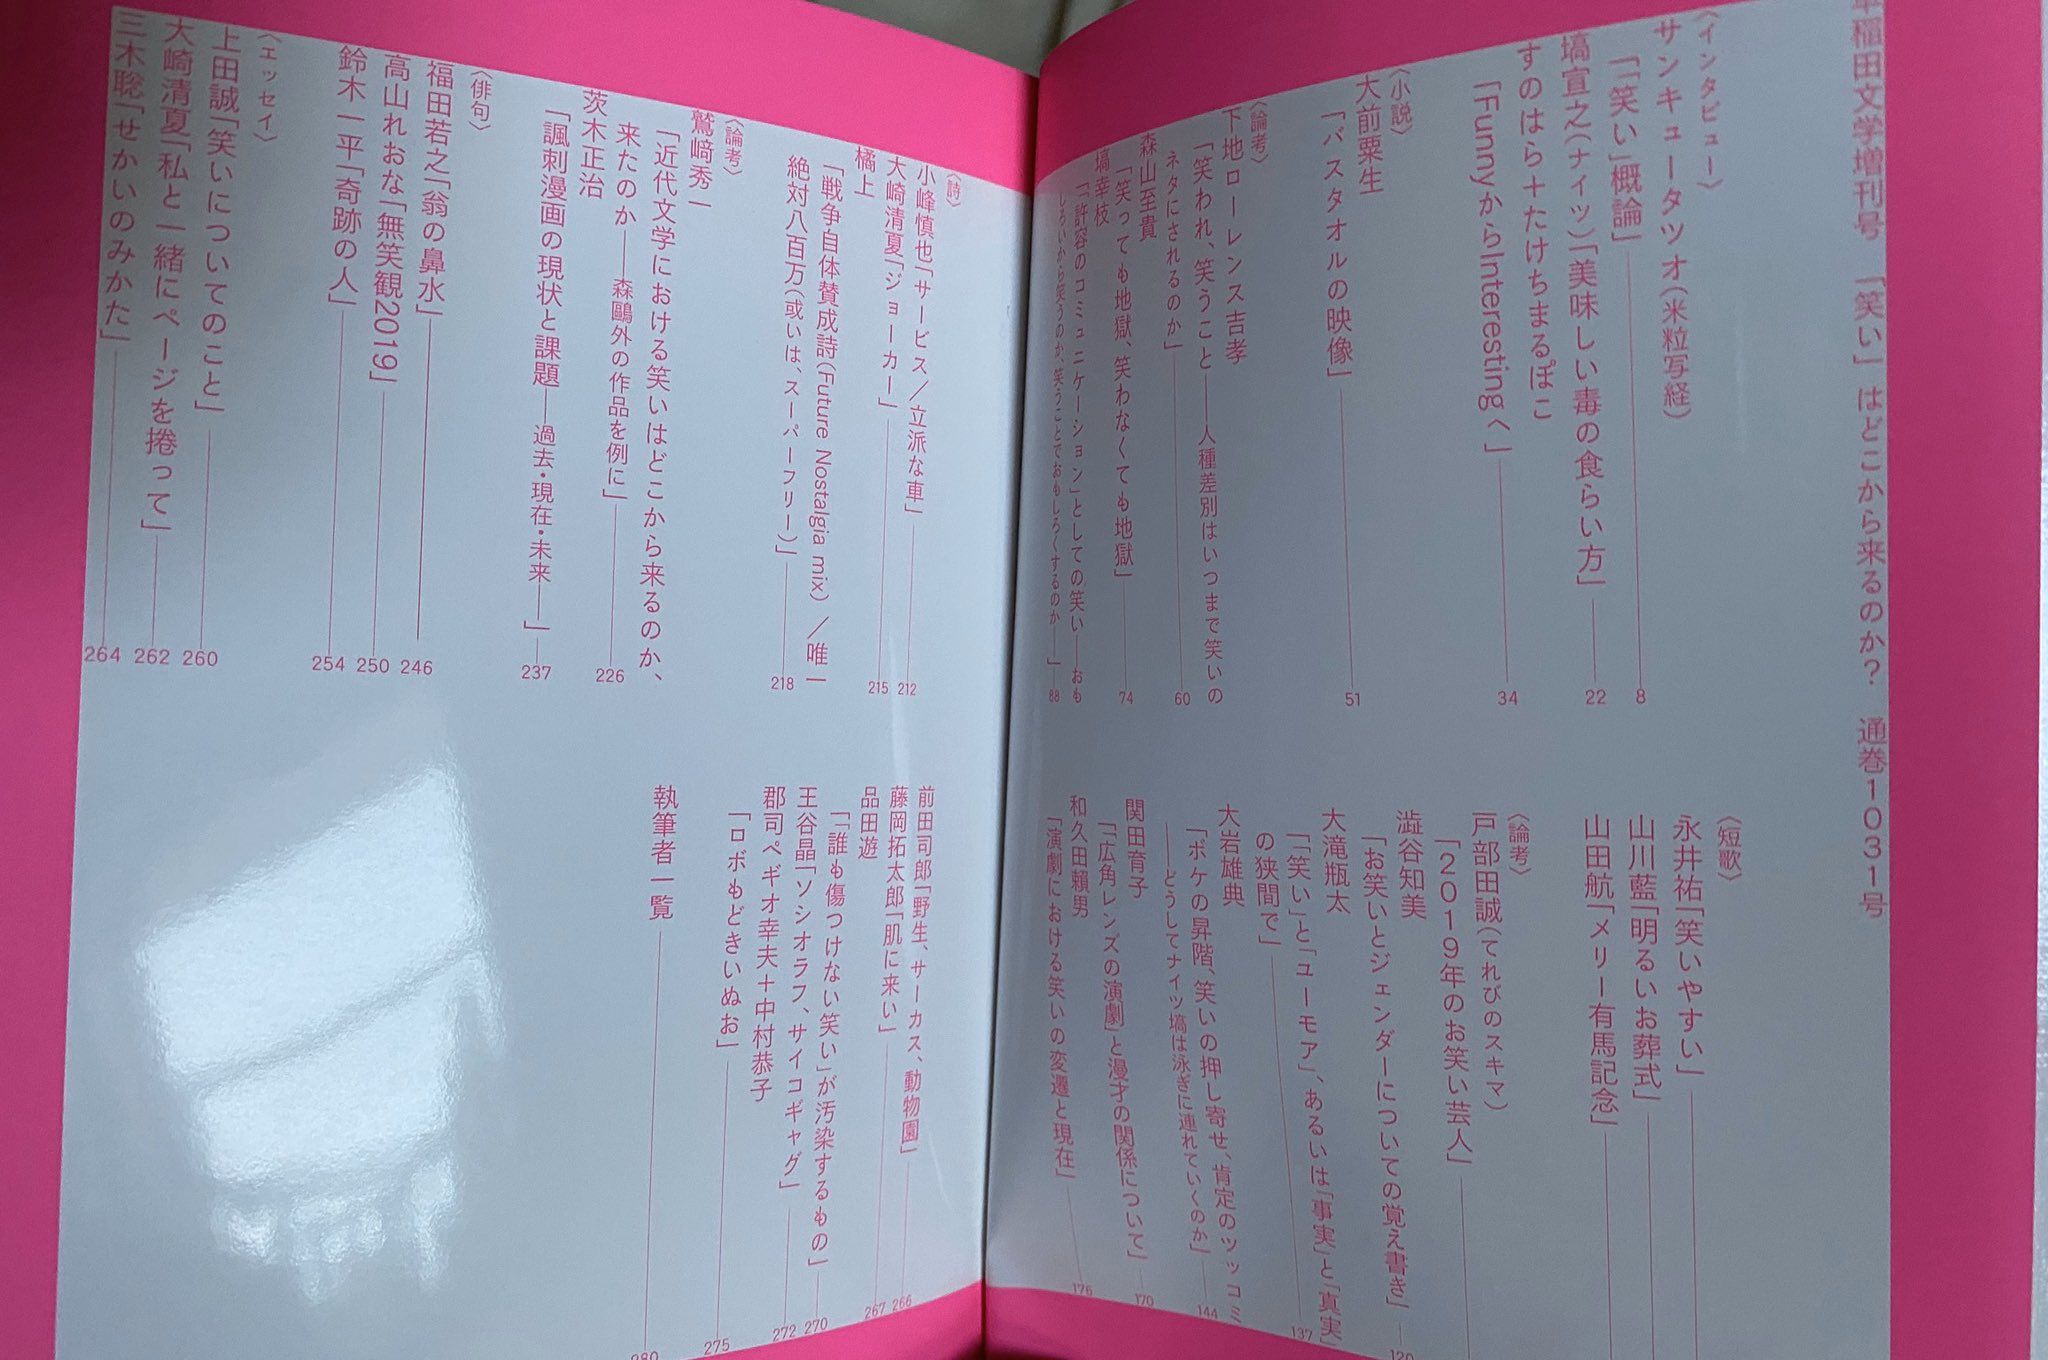 早稲田文学増刊号 「笑い」はどこから来るのか？ 通巻1031号
〈インタビュー〉
サンキュータツオ（米粒写経）
「「笑い」概論」 8
塙宣之（ナイツ）「美味しい毒の食らい方」 22
すのはら＋たけちまるぽこ
「FunnyからInterestingへ」 34
〈小説〉
大前粟生
「バスタオルの映像」 51
〈論考〉
下地ローレンス吉孝
「笑われ、笑うこと——人種差別はいつまで笑いの
ネタにされるのか」 60
森山至貴
「笑っても地獄、笑わなくても地獄」 74
塙幸枝
「「許容のコミュニケーション」としての笑い——おも
しろいから笑うのか、笑うことでおもしろくするのか——」 88
〈短歌〉
永井祐「笑いやすい」
山川藍「明るいお葬式」
山田航「メリー有馬記念」
〈論考〉
戸部田誠（てれびのスキマ）
「2019年のお笑い芸人」
澁谷知美
「お笑いとジェンダーについての覚え書き」 129
大滝瓶太
「「笑い」と「ユーモア」、あるいは「事実」と「真実」
の狭間で」 137
大岩雄典
「ボケの昇階、笑いの押し寄せ、肯定のツッコミ
——どうしてナイツ塙は泳ぎに連れていくのか」 144
関田育子
「「広角レンズの演劇」と漫才の関係について」 170
和久田賴男
「演劇における笑いの変遷と現在」 175
〈詩〉
小峰慎也「サービス／立派な車」 212
大崎清夏「ジョーカー」 215
橘上
「戦争自体賛成詩（Future Nostalgia mix）／唯一
絶対八百万（或いは、スーパーフリー）」 218
〈論考〉
鷲﨑秀一
「近代文学における笑いはどこから来るのか、
来たのか——森鷗外の作品を例に」 226
茨木正治
「諷刺漫画の現状と課題——過去・現在・未来——」 237
〈俳句〉
福田若之「翁の鼻水」 246
高山れおな「無笑観2019」 250
鈴木一平「奇跡の人」 254
〈エッセイ〉
上田誠「笑いについてのこと」 260
大崎清夏「私と一緒にページを捲って」 262
三木聡「せかいのみかた」 264
前田司郎「野生、サーカス、動物園」 266
藤岡拓太郎「肌に来い」 267
品田遊
「「誰も傷つけない笑い」が汚染するもの」 270
王谷晶「ソシオラフ、サイコギャグ」 272
郡司ペギオ幸夫＋中村恭子
「ロボもどきいぬお」 275
執筆者一覧 280